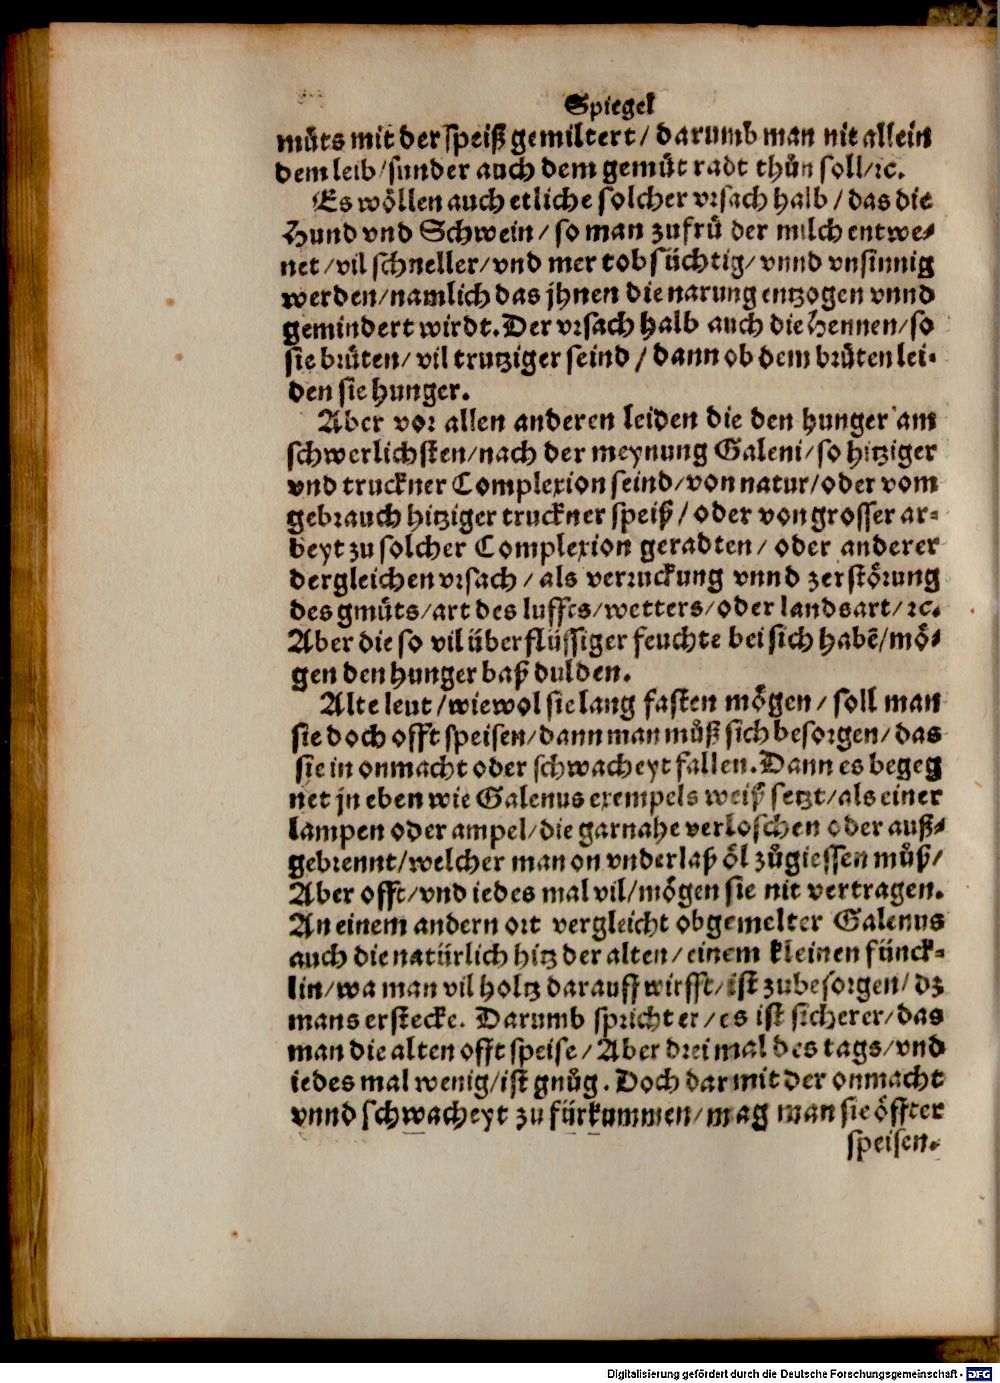 Spiegel
muͤts mit der speiß gemiltert / darumb man nit allein
dem leib / sunder auch dem gemuͤt radt thuͦn soll / ꝛc.
Es woͤllen auch etliche solcher vrsach halb / das die
Hund vnd Schwein / so man zufruͤ der milch entwe⸗
net / vil schneller / vnd mer tobsüchtig / vnnd vnsinnig
werden / namlich das jhnen die narung entzogen vnnd
gemindert wirdt. Der vrsach halb auch die Hennen / so
sie bruͤten / vil trutziger seind / dann ob dem bruͤten lei⸗
den sie hunger.
Aber vor allen anderen leiden die den hunger am
schwerlichsten / nach der meynung Galeni / so hitziger
vnd truckner Complexion seind / von natur / oder vom
gebrauch hitziger truckner speiß / oder von grosser ar⸗
beyt zu solcher Complexion geradten / oder anderer
dergleichen vrsach / als verruckung vnnd zerstoͤrung
des gmuͤts / art des luffts / wetters / oder landsart / ꝛc.
Aber die so vil überflüssiger feuchte bei sich habẽ / moͤ⸗
gen den hunger baß dulden.
Alte leut / wiewol sie lang fasten moͤgen / soll man
sie doch offt speisen / dann man muͦß sich besorgen / das
sie in onmacht oder schwacheyt fallen. Dann es begeg
net jn eben wie Galenus exempels weiß setzt / als einer
lampen oder ampel / die gar nahe verloschen oder auß⸗
gebrennt / welcher man on vnderlaß oͤl zuͦgiessen muͦß /
Aber offt / vnd iedes mal vil / moͤgen sie nit vertragen.
An einem andern ort vergleicht obgemelter Galenus
auch die natürlich hitz der alten / einem kleinen fünck⸗
lin / wa man vil holtz darauff wirfft / ist zubesorgen / dz
mans erstecke. Darumb spricht er / es ist sicherer / das
man die alten offt speise / Aber drei mal des tags / vnd
iedes mal wenig / ist gnuͦg. Doch darmit der onmacht
vnnd schwacheyt zu fürkummen / mag man sie oͤffter
speisen.
Digitalisierung gefördert durch die Deutsche Forschungsgemeinschaft - DFG